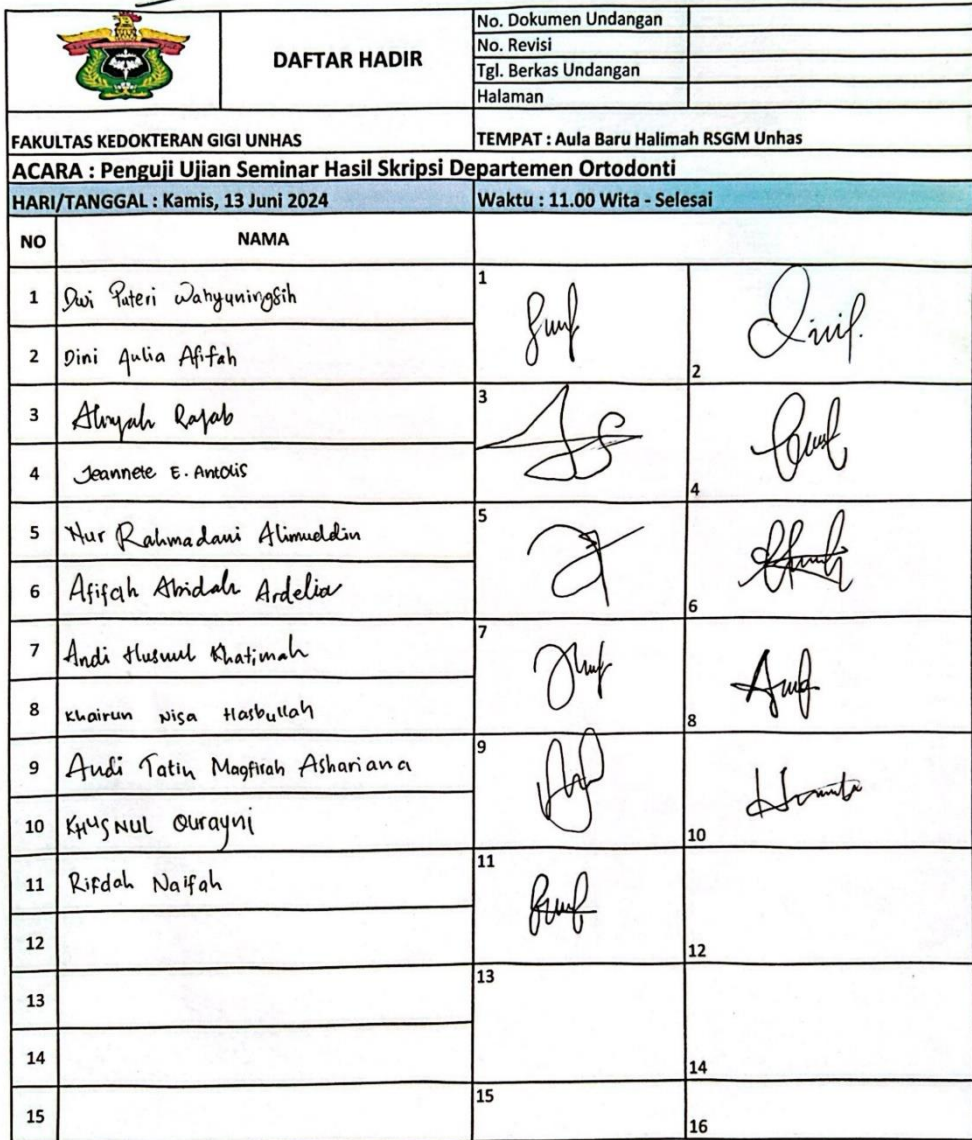 DAFTAR HADIR
No. Dokumen Undangan
No. Revisi
Tgl. Berkas Undangan
Halaman
FAKULTAS KEDOKTERAN GIGI UNHAS
TEMPAT : Aula Baru Halimah RSGM Unhas
ACARA : Penguji Ujian Seminar Hasil Skripsi Departemen Ortodonti
HARI/TANGGAL : Kamis, 13 Juni 2024
Waktu : 11.00 Wita - Selesai
NO NAMA
1 Dwi Puteri Wahyuningsih 1
2 Dini Aulia Afifah 2
3 Rajab 3
4 Jeannete E. Antolis 4
5 Nur Rahmadani Alimuddin 5
6 Afifah Abidah Ardelia 6
7 Andi Husnul Khatimah 7
8 Khairun Nisa Hasbullah 8
9 Andi Tatin Magfirah Ashariana 9
10 KHUSNUL Qurayni 10
11 Rifdah Naifah 11
12 12
13 13
14 14
15 15
16